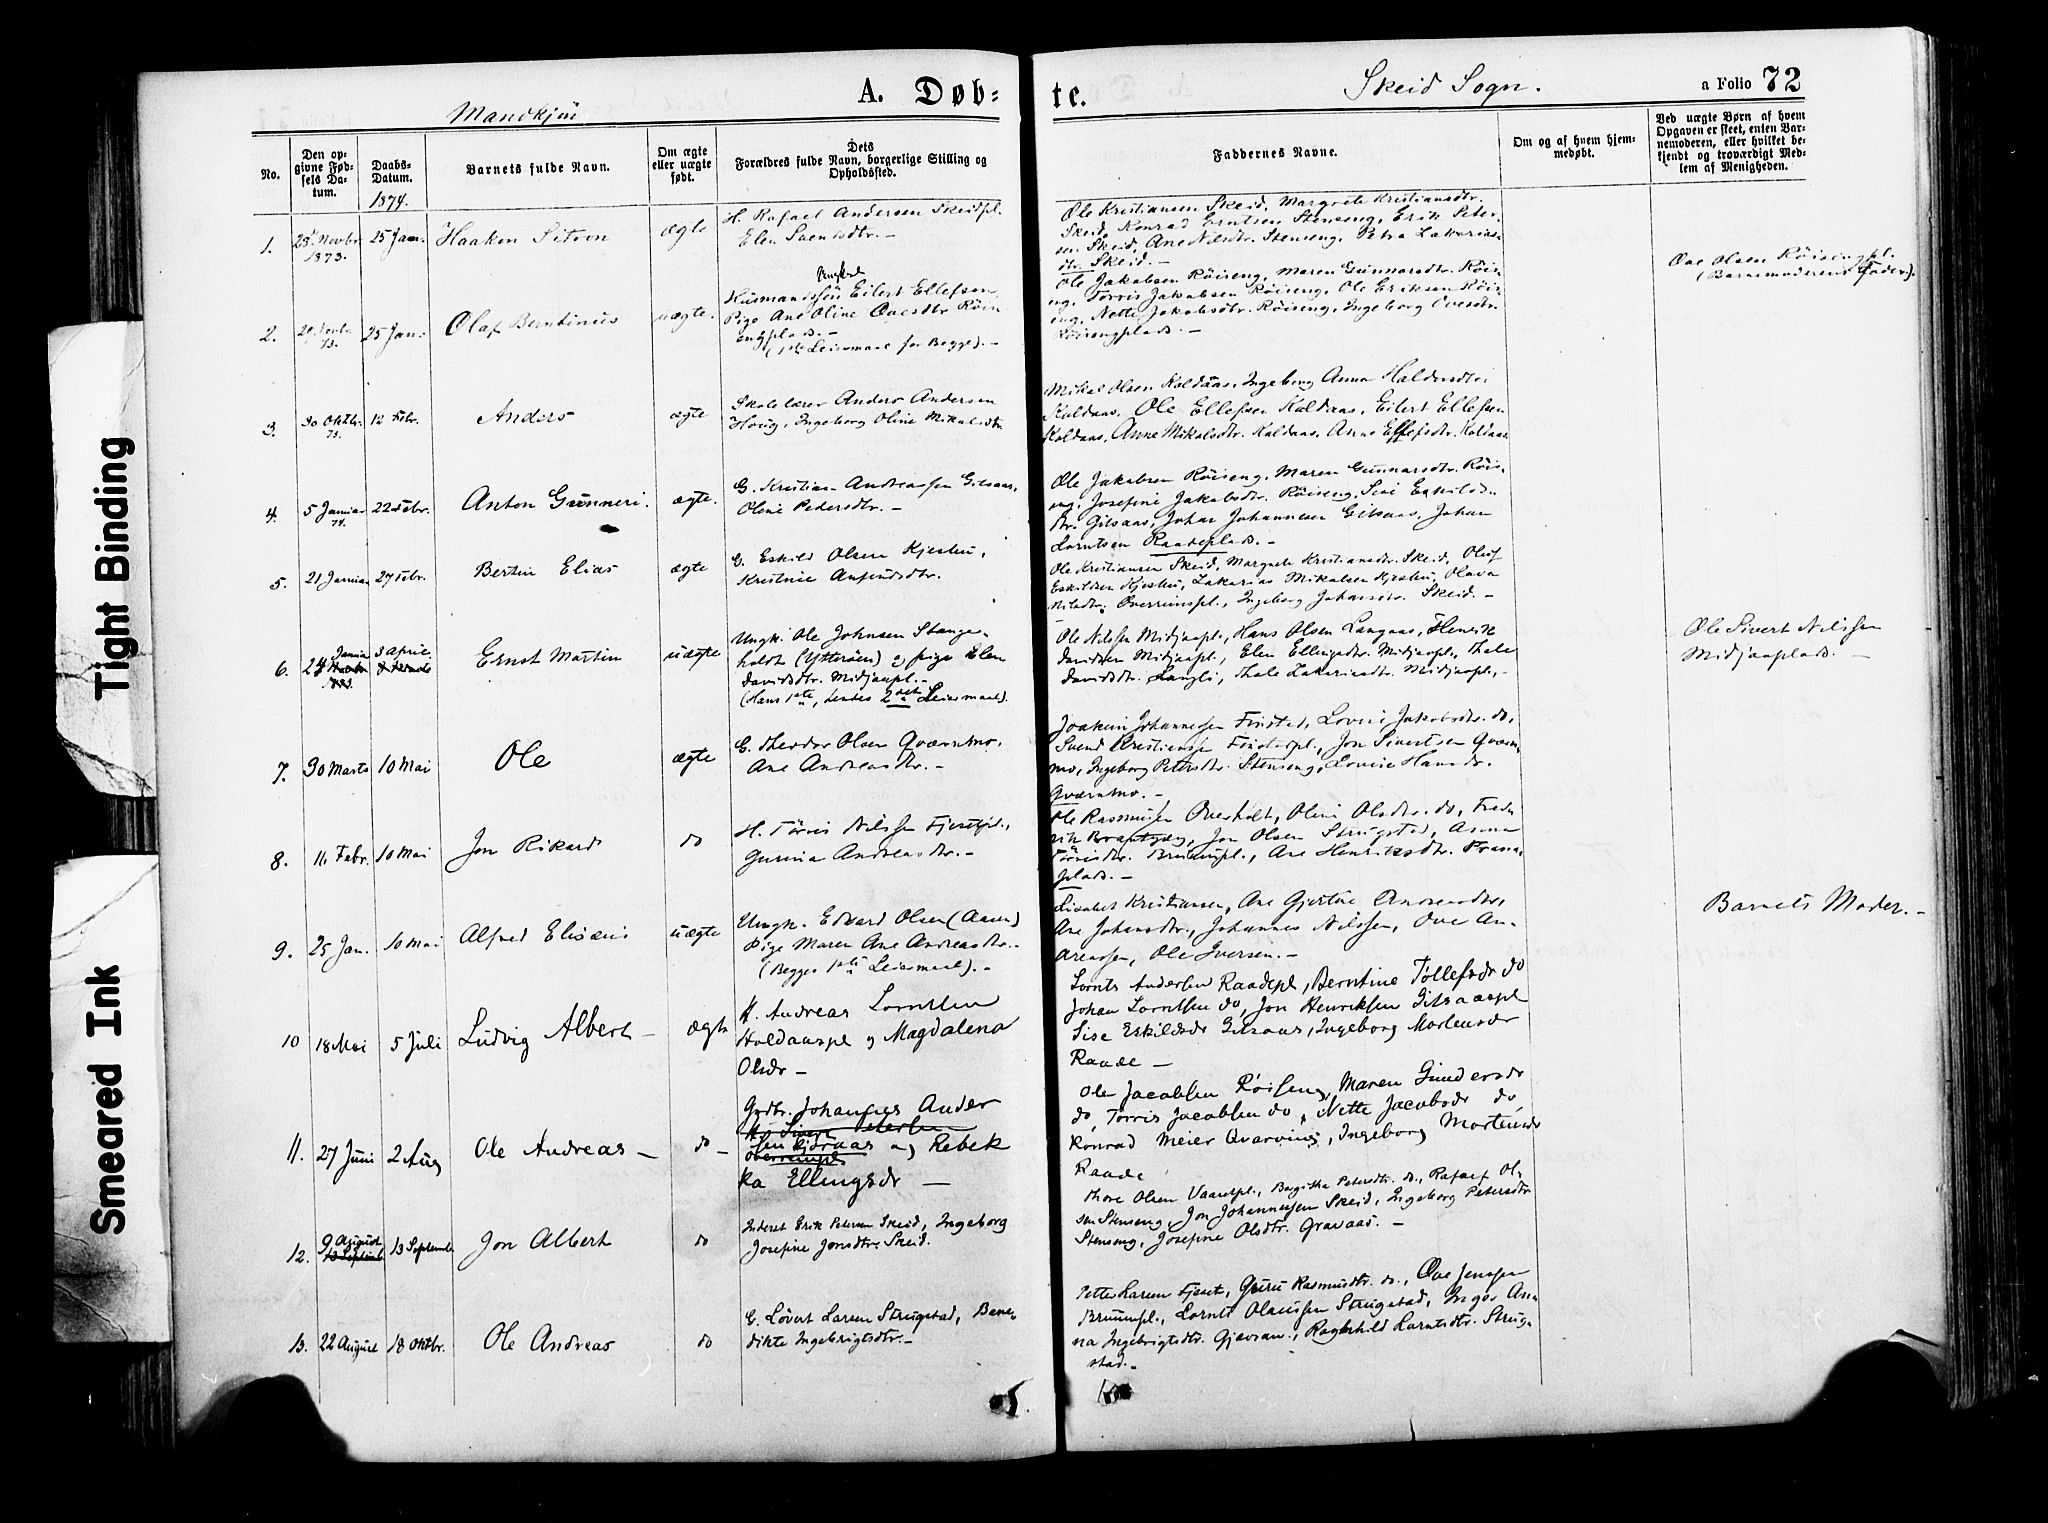 Tight Binding
Smeared Ink
A. Døb-
te.
Mandkjøn
Skeid Sogn.
a Folio 72
No.
Den op-
givne Fød-
sels Da-
tum.
Daabs-
Datum.
1874.
Barnets fulde Navn.
Om ægte
eller uægte
født.
Dets
Forældres fulde Navn, borgerlige Stilling og
Opholdssted.
Faddernes Navne.
Om og af hvem hjem-
medøbt.
Ved uægte Børn af hvem
Opgaven er skeet, enten Bar-
nemoderen, eller hvilket be-
kjendt og troværdigt Med-
lem af Menigheden.
1.
25 Novbr.
1873.
25 Jan.
Haaken
ægte
H. Rafael Andersen Skeidpl.
Elen
Ole Kristiansen Skeid, Margrete Kristiansdtr.
Skeid, Konrad Erntsen Stenseng, Erik Peter-
sen Skeid, Ane Nilsdtr. Stenseng, Petra Zakarias-
dtr. Skeid. -
2.
73.
25 Jan.
Olaf Berntinus
uægte.
Ungkarl
Husmandssøn Eilert Ellefsen
Pige Ane Oline Ovesdtr Røis-
engplads. -
(1ste Leiermaal for Begge). -
Ole Jakobsen Røiseng, Maren Gunnarsdtr. Røis-
eng, Torris Jakobsen Røiseng, Ole Eriksen Røis-
eng, Nette Jakobsdtr. Røiseng, Ingeborg Ovesdtr.
Røisengplads. -
Ove Olsen Røisengpl.
(Barnemoderens Fader).
3.
30 Oktbr.
73.
12 Febr.
Anders
ægte
Skolelærer Anders Andersen
Houg, Ingeborg Oline Mikalsdtr.
Mikal Olsen Koldaas, Ingeborg Anna Haldorsdtr.
Koldaas, Ole Ellefsen Koldaas, Eilert Ellefsen
Koldaas, Anne Mikalsdtr. Koldaas, Anne Ellefsdtr. Koldaas.
4.
5 Januar
74.
22 Febr.
Anton Gunneri.
ægte.
G. Kristian Andreassen Gilsaas,
Oline Pedersdtr. -
Ole Jakobsen Røiseng, Maren Gunnarsdtr. Røis-
eng, Josefine Jakobsdtr. Røiseng, Sise Eskilds-
dtr. Gilsaas, Johan Johannesen Gilsaas, Johan
Lorntsen Raadeplads. -
5.
21 Januar
27 Febr.
Bertin Elias
ægte
G. Eskild Olsen Kjeslu,
Kristine
Ole Kristiansen Skeid, Margrete Kristiansdtr. Skeid, Oluf
Eskildsen Kjeslu, Zakarias Mikalsen Kjeslu, Olava
Nilsdtr. Overreinspl., Ingeborg Johansdtr. Skeid. -
6.
24 Januar
3 April
Ernst Martin
uægte
Ungk. Ole Johnsen Stange-
holdt (Ytterøen) og pige Elen
Davidsdtr. Midjaapl. -
(Hans 1ste, hendes 2det Leiermaal).
Ole Nilssen Midjaapl., Hans Olsen Langaas, Henrik
Davidsen Midjaapl., Elen Ellingsdtr. Midjaapl., Thale
Davidsdtr. Langli, Thale Zakariasdtr. Midjaapl. -
Ole Sivert Nilssen
Midjaaplads. -
7.
30 Marts
10 Mai
Ole
ægte
G. Theodor Olsen Qværnmo,
Ane Andreasdtr. -
Joakim Johannesen Finstad, Lovise Jakobsdtr. do,
Svend Kristiansen Finstadpl., Jon Sivertsen Qværn-
mo, Ingeborg Petersdtr. Stenseng, Lovise Hansdtr.
Qværnmo. -
8.
11 Febr.
10 Mai
Jon Rikard
do
H. Tørris Nilssen
Andreasdtr. -
Ole Rasmussen Overholt, Oline Olsdtr. do, Fred-
rik Jon Olsen Strugstad, Anna
Tørrisdtr. Ane Henriksdtr.
plads. -
9.
25 Jan.
10 Mai
Alfred Elisæus
uægte
Ungk. Edvard Olsen (Aasen)
Pige Maren Ane Andreasdtr. -
(Begges 1ste Leiermaal). -
Kristiansen, Ane Gjertine Andreasdtr,
Ane Johansdtr., Johannes Nilssen, Ove An-
dreassen, Ole Iversen. -
Barnets Moder. -
10
18 Mai
5 Juli
Ludvig Albert -
ægte
H. Andreas Lorntsen
Koldaaspl og Magdalena
Olsdr -
Lornts Andersen Raadepl, Berntine Tøllefsdr do
Johan Lorntsen do, Jon Henriksen Gilsaaspl
Sise Eskildsdr Gilsaas, Ingeborg Mortensdr
Raade -
11.
27 Juni
2 Aug
Ole Andreas -
do -
Grdbr. Johannes Ander
sen Kjøraas og Rebek
ka Ellingsdr -
Ole Jacobsen Røiseng, Maren Gundersdr
do, Torris Jacobsen do, Nette Jacobsdr do,
Konrad Meier Qvarving, Ingeborg Mortensdr
Raade
12.
9 August
13 Septembr
Jon Albert
do
Inderst Erik Petersen Skeid, Ingeborg
Josefine Jonsdtr. Skeid.
Thore Olsen Vaaretpl., Bergitha Petersdtr. do., Rafael Ol-
sen Stenseng, Jon Johannesen Skeid, Ingeborg Petersdtr
Stenseng, Josefine Olsdtr. Gravaas. -
13.
22 August
18 Oktbr.
Ole Andreas
do
G. Løvert Larsen Strugstad, Bene-
dikte Ingebrigtsdtr. -
Petter Larsen Fjeset, Guru Rasmusdtr. do., Ove Jenssen
Bruumpl., Lornts Olaussen Strugstad, Inger An-
na Ingebrigtsdtr. Gjævran., Ragnhild Larntsdtr. Strug-
stad. -